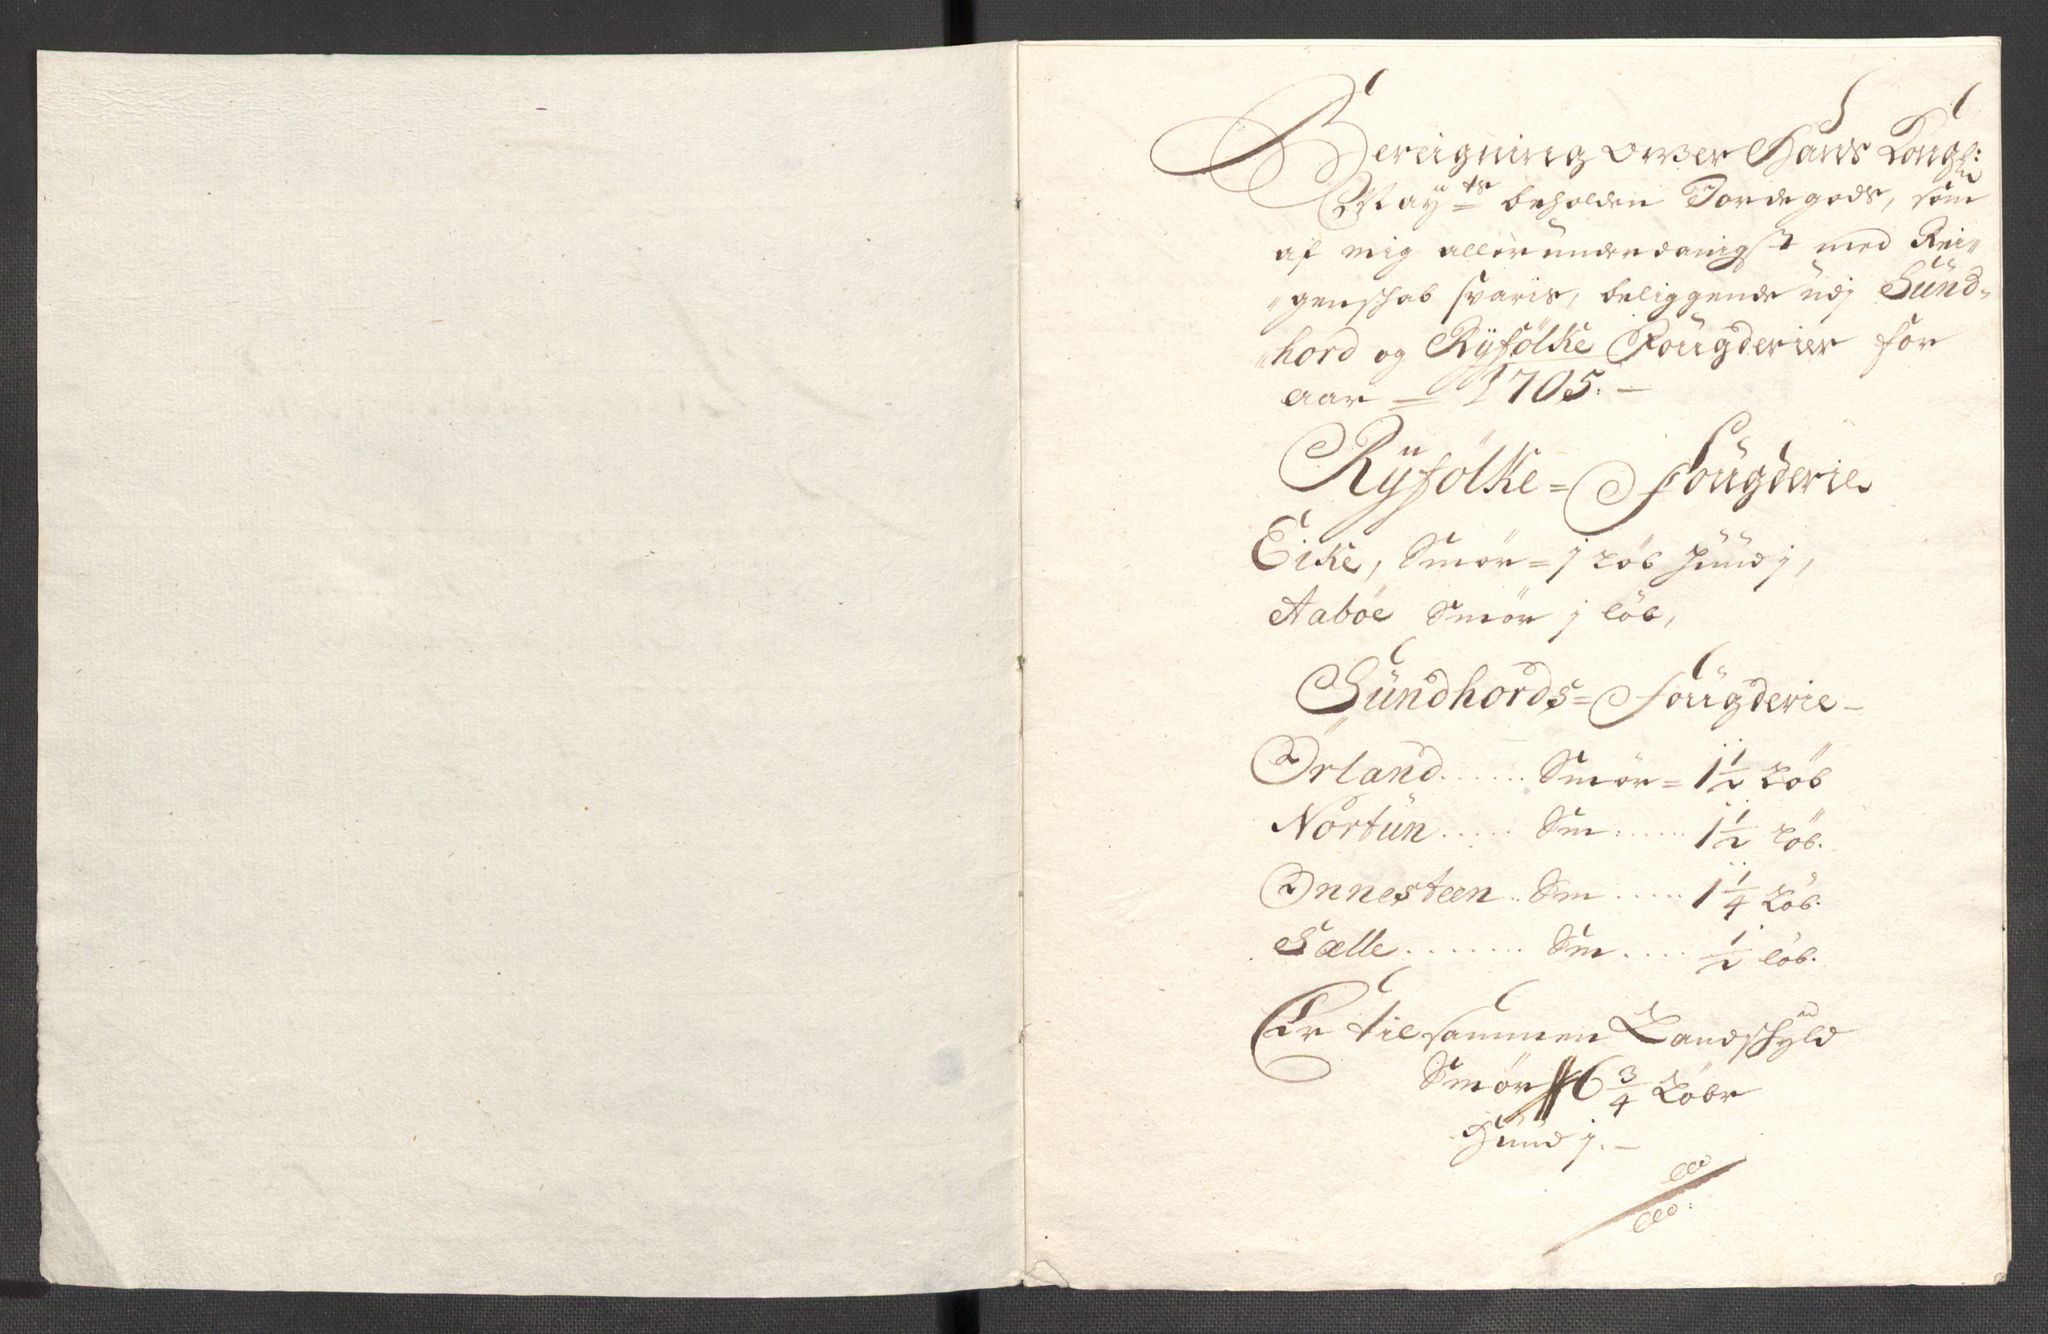 Bereigning ower Hans Kongl:
May:ts beholden Jordegods, som
af mig allerunderdanigst med Rei„
„genschab svaris, beliggende udj Sünd„
„hord og Ryfölke Fougderier for
aar = 1705. —
Ryfölke = Fougderie
Eike, Smör = j Löb Huud j,
Aaböe Smör j löb,
Sündhords = Fougderie —
Örland ...... Smör = 1½ Löb
Nortün ..... Sm ..... 1½ Löb.
Önnesteen .. Sm ..... 1¼ Löb.
Sælle ....... Sm .... ½ löb.
Er tilsammen Landschyld
Smör 6¾ Löbr
Huud j. —